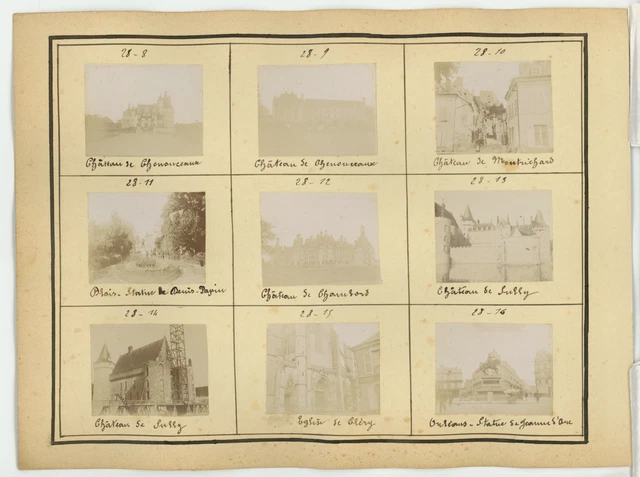 28-8
28-9
28-10
Château de Chenonceaux
Château de Chenonceaux
Château de Montrichard
28-11
28-12
28-13
Blois - Statue de Denis-Papin
Château de Chambord
Château de Sully
28-14
28-15
28-16
Château de Sully
Eglise de Cléry
Orléans - Statue de Jeanne d'Arc